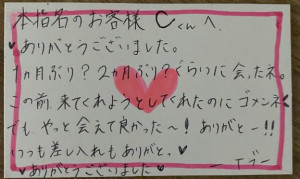 本指名のお客様 Cくんへ、
♥ありがとうございました。
1ヵ月ぶり？2ヵ月ぶり？ぐらいに会ったネ。
この前、来てくれようとしてくれたのにゴメンネ
でも、やっと会えて良かった〜！ありがと〜!!
いつも差し入れもありがと。♥
♥ありがとうございました♥